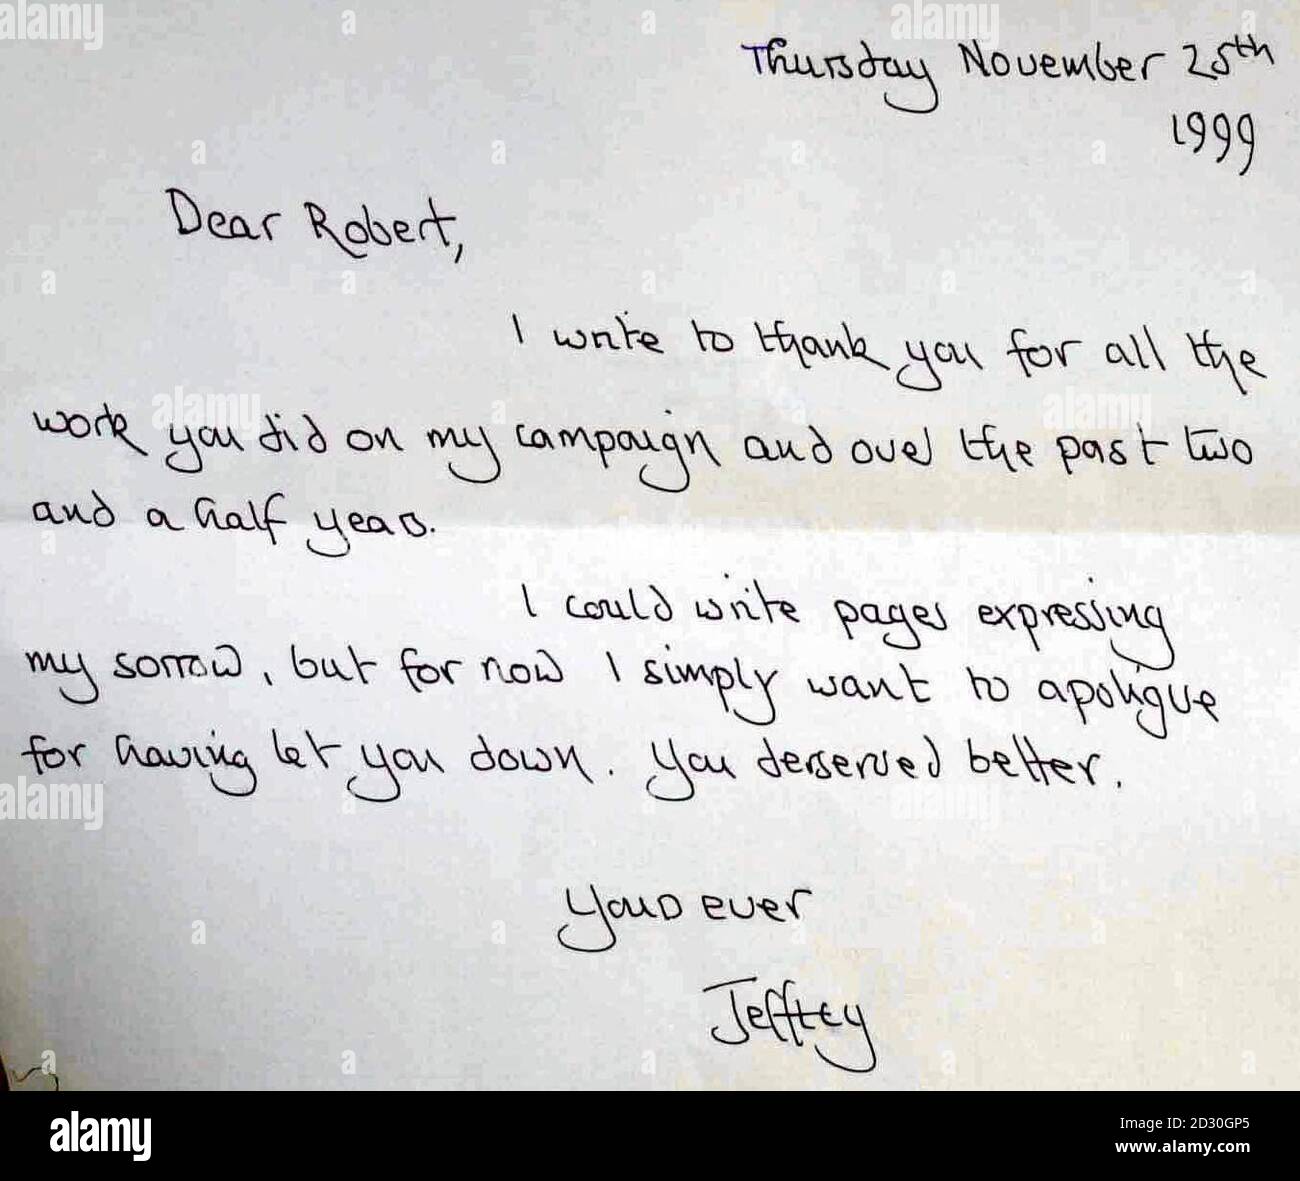 Thursday November 25th
1999
Dear Robert,
I write to thank you for all the
work you did on my campaign and over the past two
and a half years.
I could write pages expressing
my sorrow, but for now I simply want to apoligue
for having let you down. You derserved better.
Yours ever
Jeffrey
alamy
Image ID: 2D30GP5
www.alamy.com